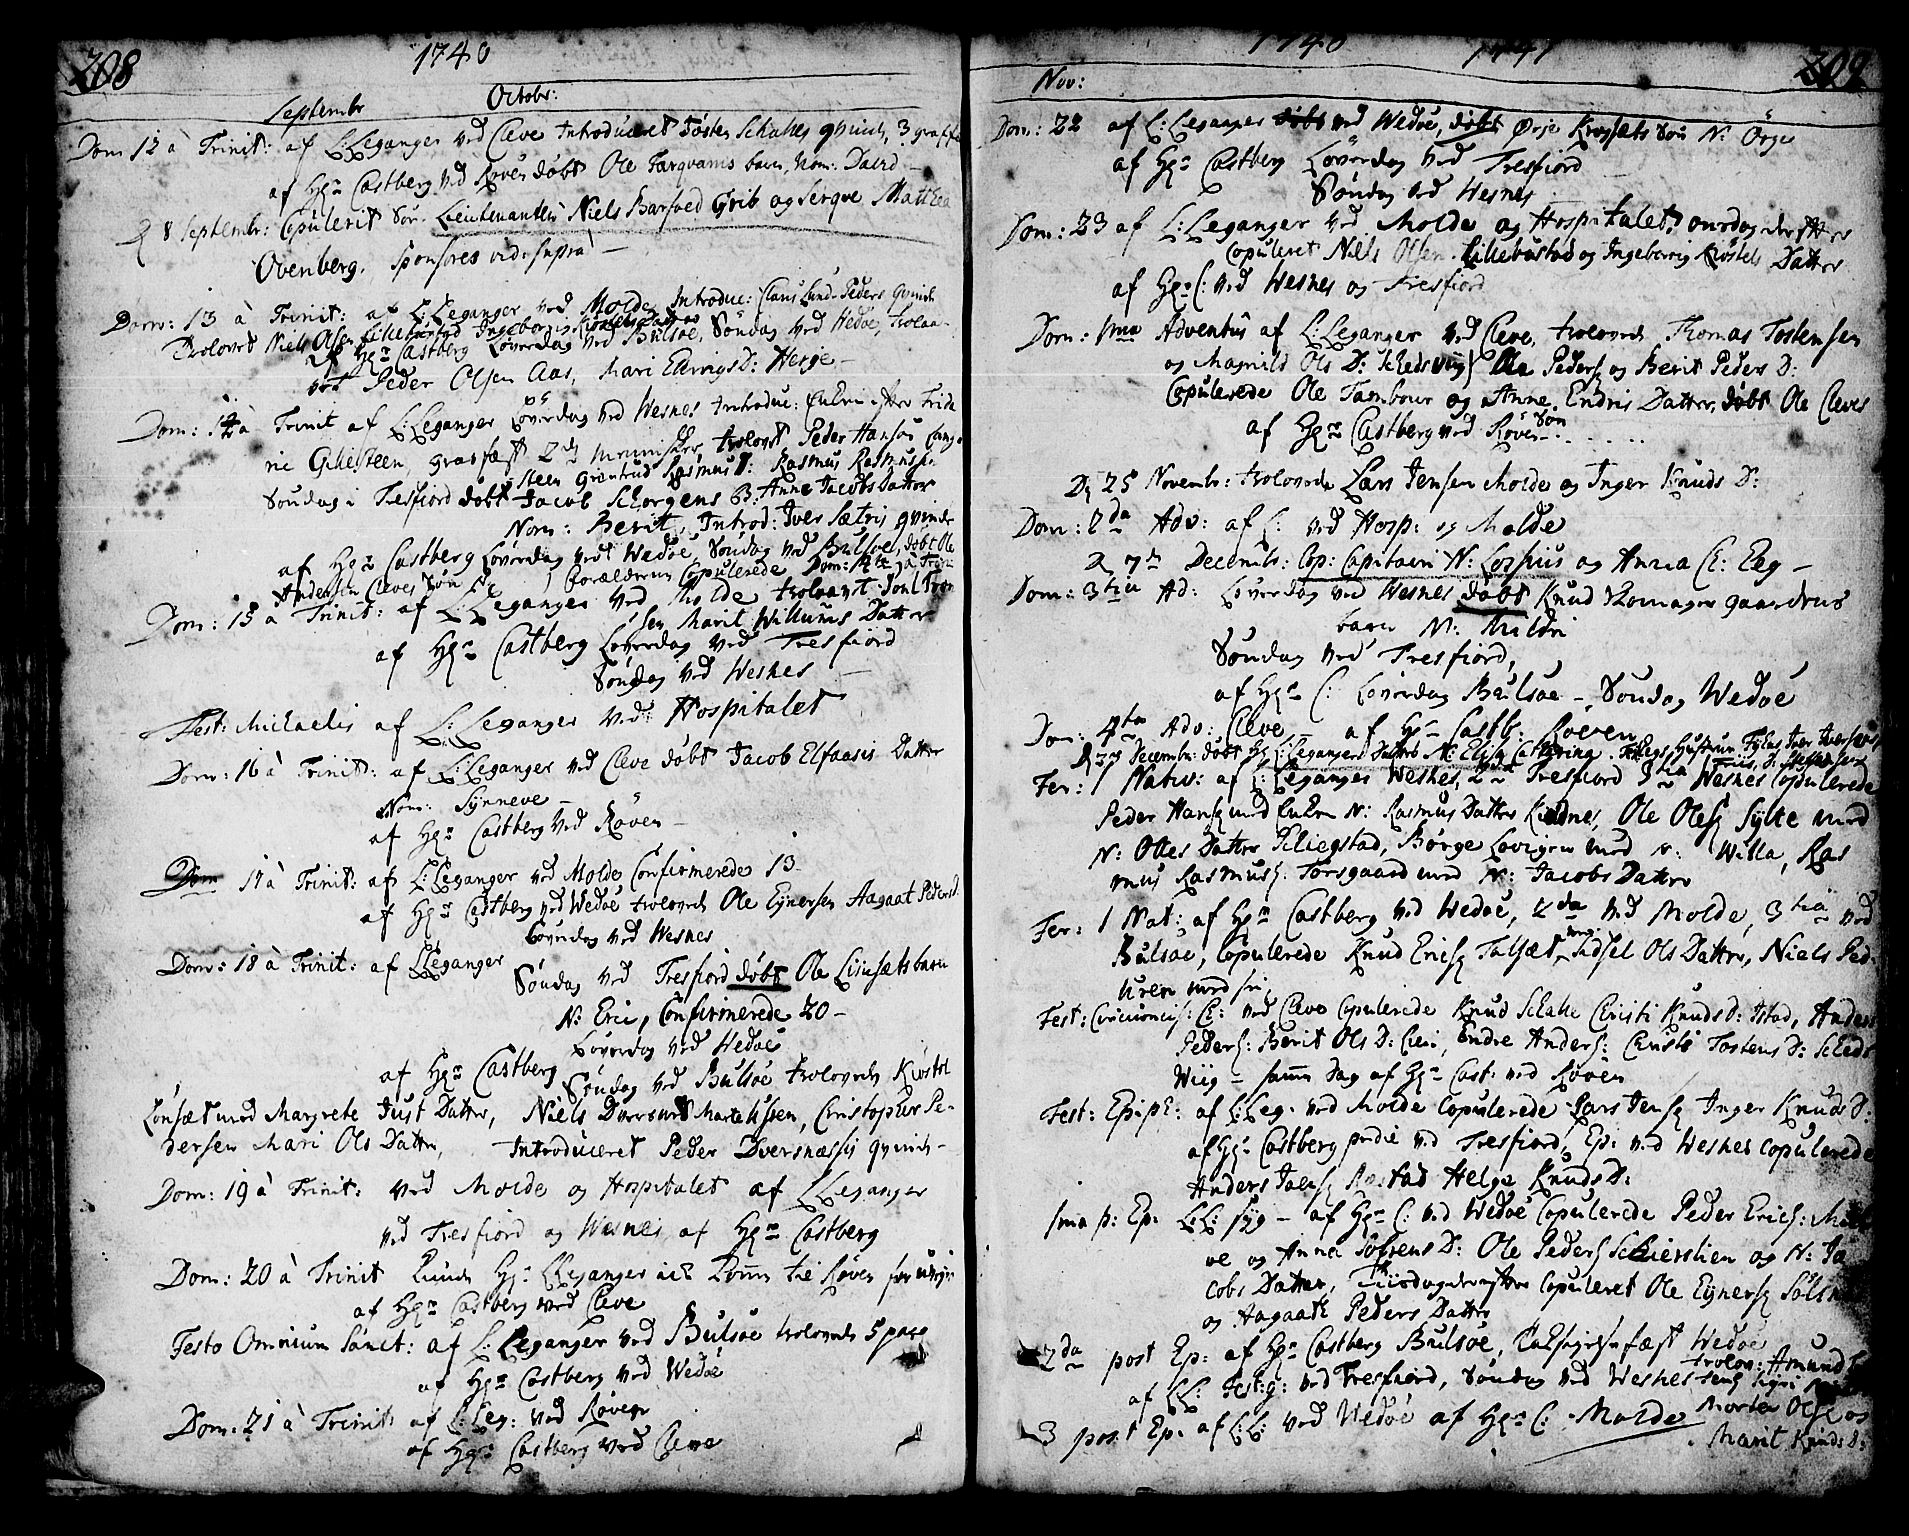 208
1740
Septembr Octobr:
Dom 12 à Trinit: af L: Leganger ved Cleve Introduceret Tosten Schakes qvinde, 3 graff
af Hr Castberg ved Røven døbt Ole Targvams barn, Nom: David
D 8 Septembr: Copulerit Sor. Lieutenanten Niels Barsved Grib og Serqve Matthea
Ovenberg. Sponsores vid: supra
Dom: 13 à Trinit: af L: Leganger ved Molde, Introdue: Claus Lund Peders qvinde
Troloves Niels Olsen Lillebostad Ingebor
af Hr Castberg Løverdag ved Bulsøe, Søndag ved Wedøe, trolaa-
ved Peder Olsen Aas, Mari Ellevigs D: Herje
Dom: 14 à Trinit af L: Leganger Løverdag ved Wesnes Introdue: Enken efter Fride
ric Ghisteen, grafæst 2de mennisker, trolovet Peder Hanses
Steen Giøntrud Rasmus D: Rasmus Rasmus
Søndag i Tresfiord døbt Jacob Schorgens B. Anne Jacobs datter
Nom: Berit, Introd: Iver Sætris qvinde
af Hr Castberg Løverdag ved Wedøe, Søndag ved Bulsøe, døbt Ole
Andersen Cleves Søn Forælderne Copulerede Dom: 14de à Trin:
Dom: 15 à Trinit: af L: Leganger ved Molde trolovet Joul Tron
sen Marit Willums Datter
af Hr Castberg Løverdag ved Tresfiord
Søndag ved Wesnes
Fest: Michaelis af L: Leganger ved Hospitalet
Dom: 16 à Trinit: af L: Leganger ved Cleve døbt Jacob Elfaasis Datter
Nom: Synneve
af Hr Castberg ved Røven
Dom 17 à Trinit: af L: Leganger ved Molde Confirmerede 13
af Hr Castberg ved Wedøe trolovede Ole Eynersen Aagaat Peders D
Løverdag ved Wesnes
Dom: 18 à Trinit: af L Leganger
Søndag ved Tresfiord døbt Ole Lilusæts barn
N: Eric, Confirmerede 20
Løverdag ved Wedøe
af Hr Castberg
Søndag ved Bulsøe trolovede Kiøstel
Lonsæt med Margrete Just Datter, Niels Dversnes Marte Ussen, Christopher Pe-
dersen Mari Ols Datter, Introduceret Peder Dversnæssis qvinde
Dom: 19 à Trinit: ved Molde og Hospitalet af L Leganger
ved Tresfiord og Wesnes af Hr Castberg
Dom: 20 à Trinit Kunde Hr L Leganger icke komme til Røven for
af Hr Castberg ved Cleve
Festo Omnium Sanct: af L: Leganger ved Bulsøe trolovede 5 parr
af Hr Castberg ved Wedøe
Dom: 21 à Trinit: af L: Leg: ved Røven
af Hr Castberg ved Cleve
1740 1741
209
Nov:
Dom: 22 af L: Leganger døbt ved Wedøe, døbt Ørje Krogsæts Søn N: Örge
af Hr Castberg Løverdag ved Tresfiord
Søndag ved Wesnes
Dom: 23 af L: Leganger ved Molde og Hospitalet, onsdag derefter
Copuleret Niels Olsen Lillebostad og Ingeborrig Kiøstels Datter
af Hr C: ved Wesnes og Tresfiord
Dom: 1ma Adventus af L: Leganger ved Cleve, trolovede Thomas Tostensen
og Magnild Ols D: Schedsvüg Ole Peders og Berit Peders D:
Copulerede Ole Tambour og Anne Endris Datter, døbt Ole Cleves
Søn
af Hr Castberg ved Røven
D 25 Novembr: trolovede Lars Jensen Molde og Inger Knuds D:
Dom: 2da Adv: af L: ved Hosp: og Molde
D 7de Decemb: Cop: Capitain N: Lossius og Anna C: Eeg
Dom: 3tia Ad: Løverdag ved Wesnes døbt Knud Romager gaardens
barn N: Mildri
Søndag ved Tresfiord,
af Hr C: Løverdag Bulsøe - Søndag Wedøe
Dom: 4ta Adv: Cleve - af Hr Castb: Røven
Decembr: døbt Hr L: Legangers Datter N: Elisa Cathring
Fer: 1 Nativ: af L: Leganger Wesnes, 2den Tresfiord 3tia Wesnes Copulerede
Peder Hans med Enken N: Rasmus Datter Kiednes, Ole Ols Sylte med
N: Olles Datter Schiegstad, Børge Lovigen med N: Willa, Ras
mus Rasmus Torsgaard med N: Jacobs Datter
Fer: 1 Nat: af Hr Castberg ved Wedøe, 2da ved Molde, 3tia ved
Bulsøe, Copulerede Knud Erics Talsæt, Sidsel Ols Datter, Niels Ped.
uren med
Fest: Circumcis: L: ved Cleve Copulerede Knud Schake Christi Knuds D: Istad, Anders
Peders: Berit Ols D: Endre Anders: Christi Tostens D: Scheds
Wiig - samme dag af Hr Cast: ved Røven
Fest: Epiph: af L: Leg. ved Molde Copulerede Lars Jens Inger Knuds D:
af Hr Castberg pridie ved Tresfiord, Ep: ved Wesnes Copulerede
Anders Helge Knuds D:
1ma p: Ep. L: L: syg - af Hr C: ved Wedøe Copulerede Peder Erics:
og Anna Sofrens D: Ole Peders Schierslien og N: Ja
cobs Datter, Tiisdag derefter Copuleret Ole Eyners
og Aagaat Peders Datter
2da post Ep: af Hr Castberg Bulsøe, Wedøe
trolov: Amund
af L: ved Tresfiord, Søndag ved Wesnes
3 post Ep. af L: L: ved Wedøe af Hr C: Molde Morten Ols og
Marit Knuds D: